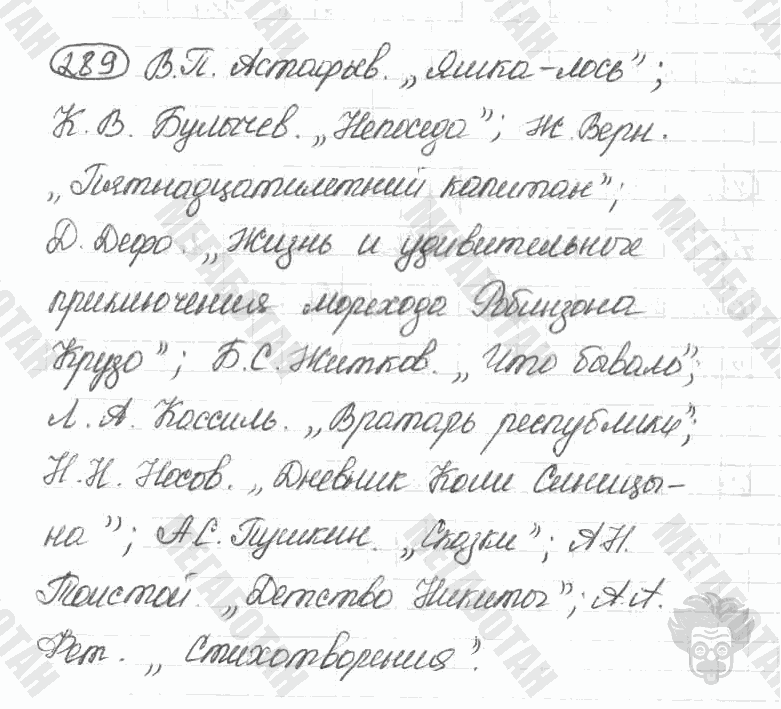 289 В.П. Астафьев. „Яшка-лось”;
К. В. Булычев. „Непоседа”; Ж. Верн.
„Пятнадцатилетний капитан”;
Д. Дефо. „Жизнь и удивительные
приключения морехода Робинзона
Крузо”; Б.С. Житков. „Что бывало”;
Л. А. Кассиль. „Вратарь республики”;
Н. Н. Носов. „Дневник Коли Синицы-
на”; А.С. Пушкин. „Сказки”; А.Н.
Толстой. „Детство Никиты”; А.А.
Фет. „Стихотворения”.
МЕГАБОТАН